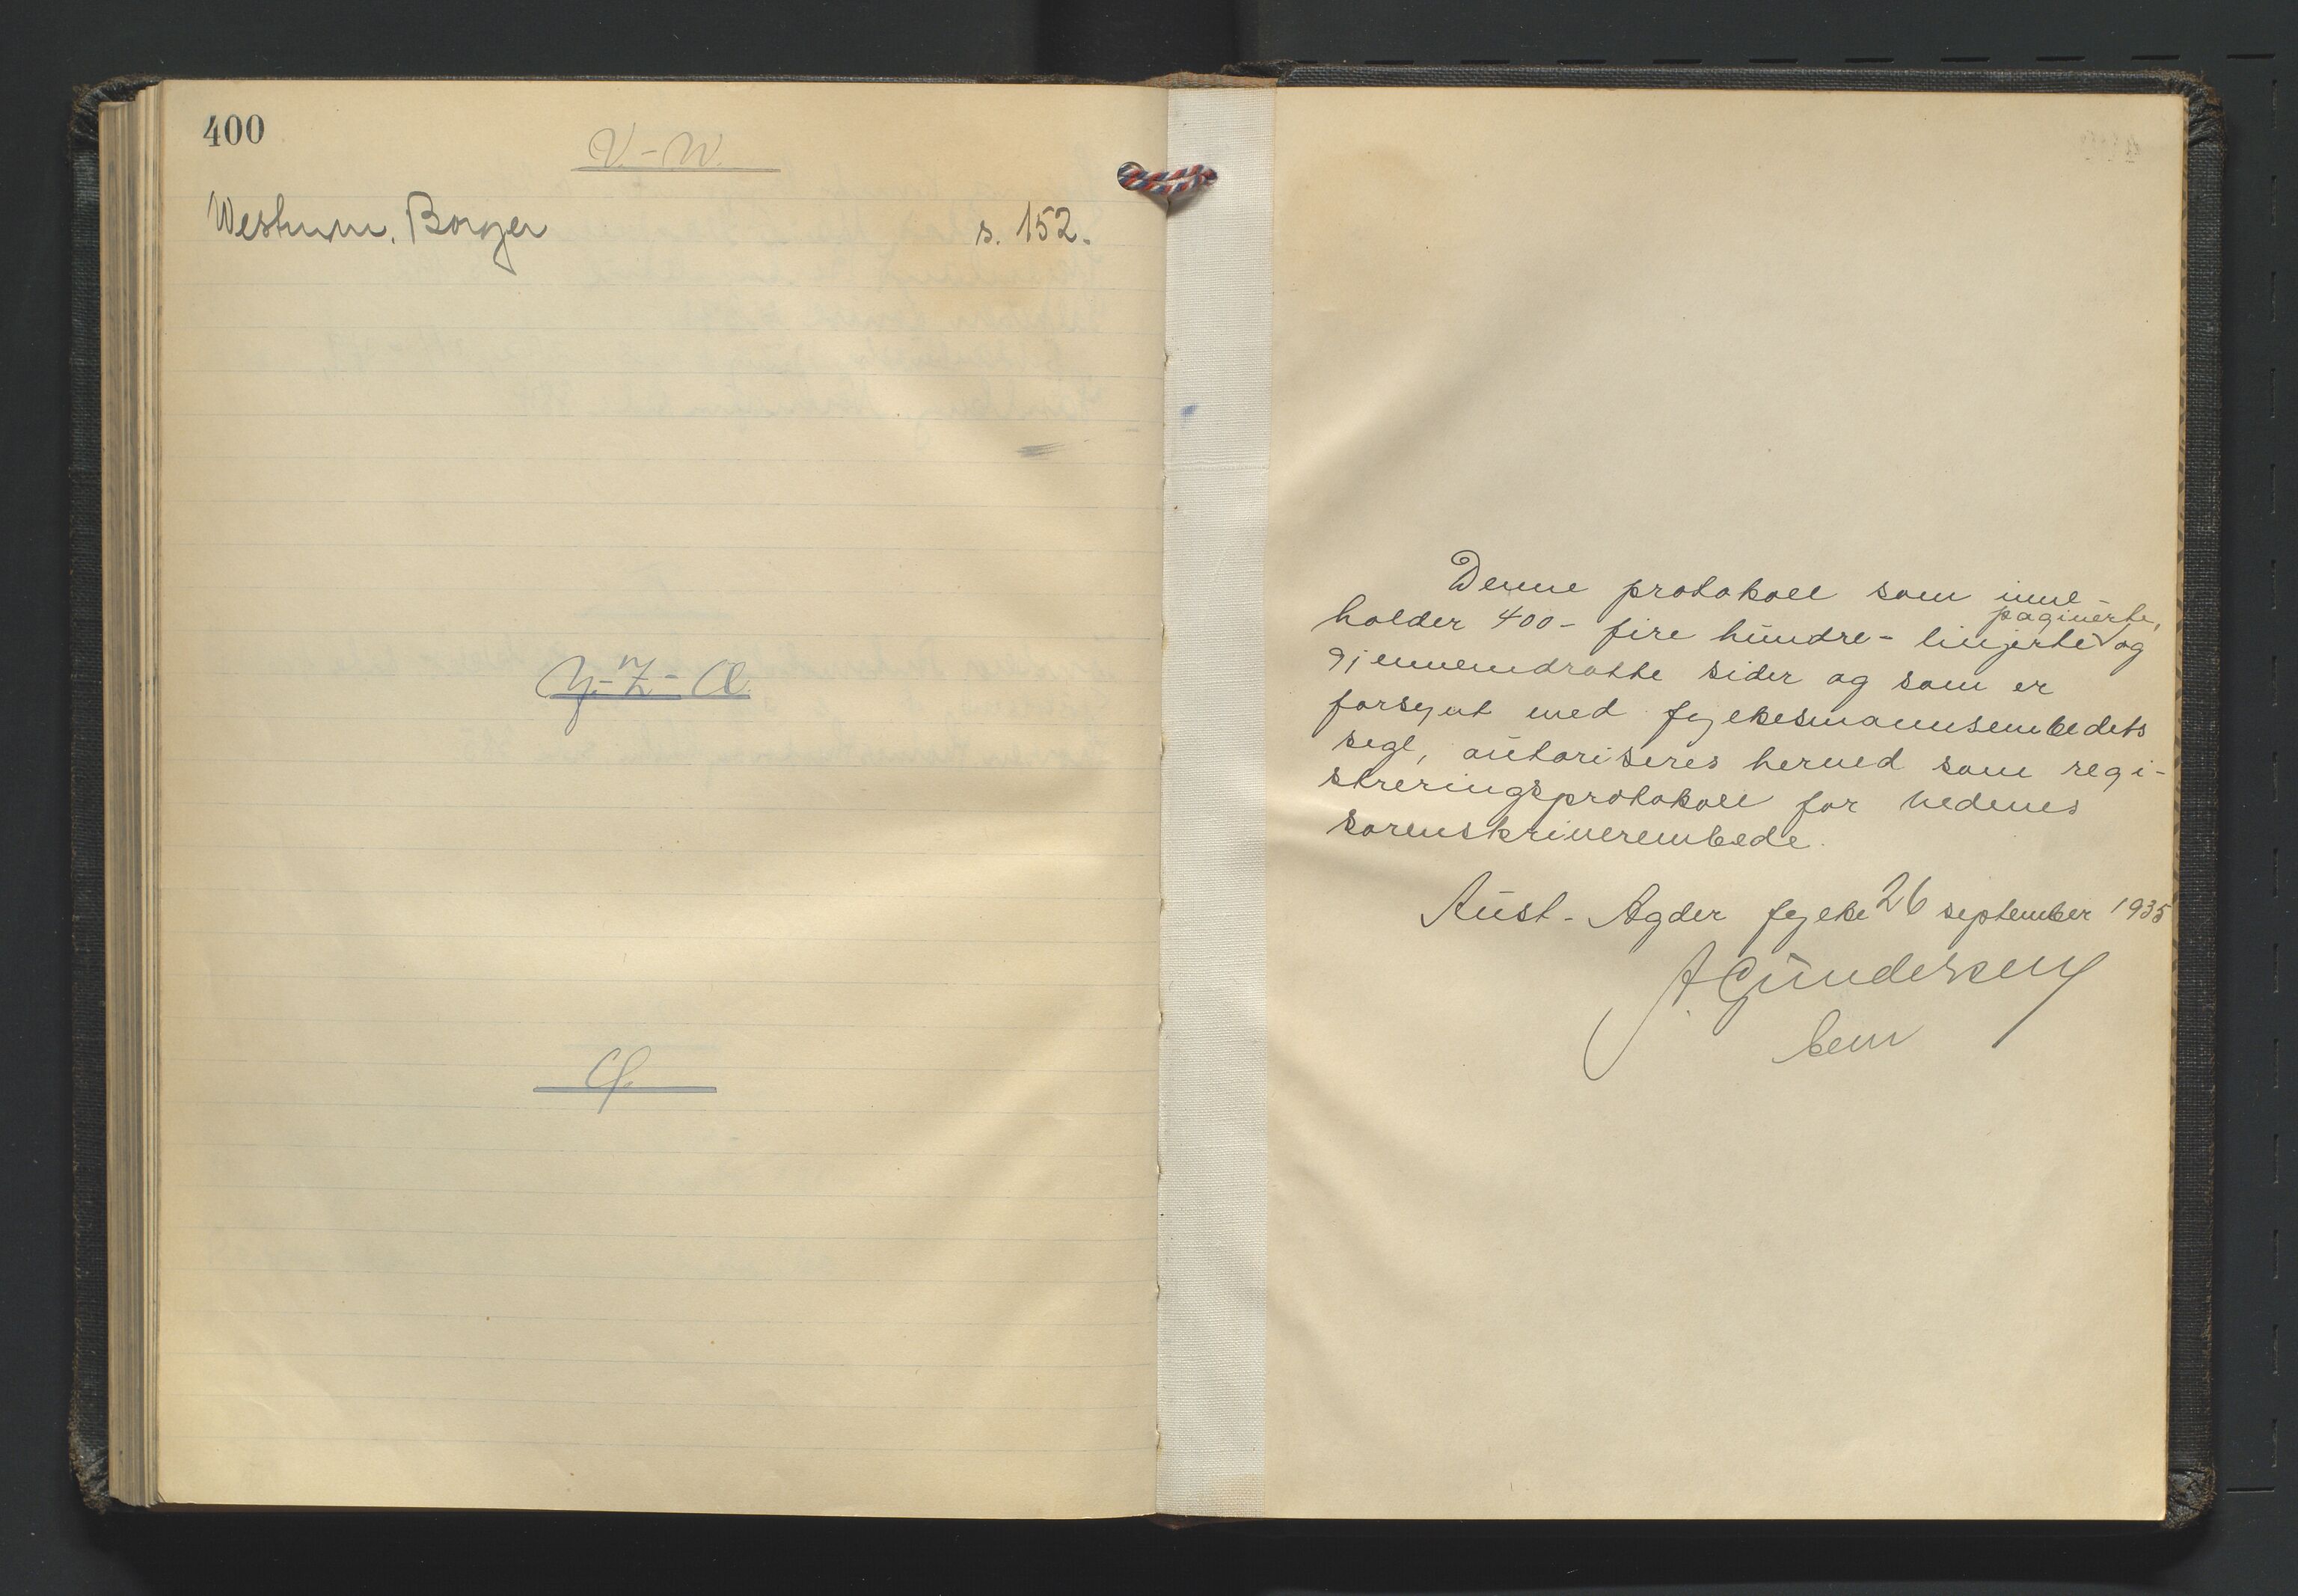 400
V.-W.
Westrum, Borger s. 152.
Y.-Z-Æ
Ø.
Denne protokoll som inne-
holder 400 - fire hundre - linjerte paginerte, og
gjennemdratte sider og som er
forsynt med fylkesmannsembedets
segl, autoriseres herved som regi-
streringsprotokoll for Nedenes
sorenskriverembede.
Aust-Agder fylke 26 september 1935
A Gundersen